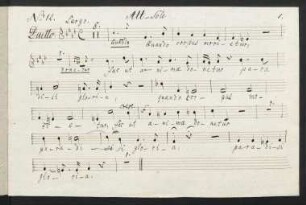 No 12. Largo. Alt-Solo. 1.
Duetto
quando corpus morietur,
fac ut animae donetur para-
disi gloria. quando corpus mo-
rie- tur, fac ut animae donetur
para- di- si gloria para- disi
glo- ria.